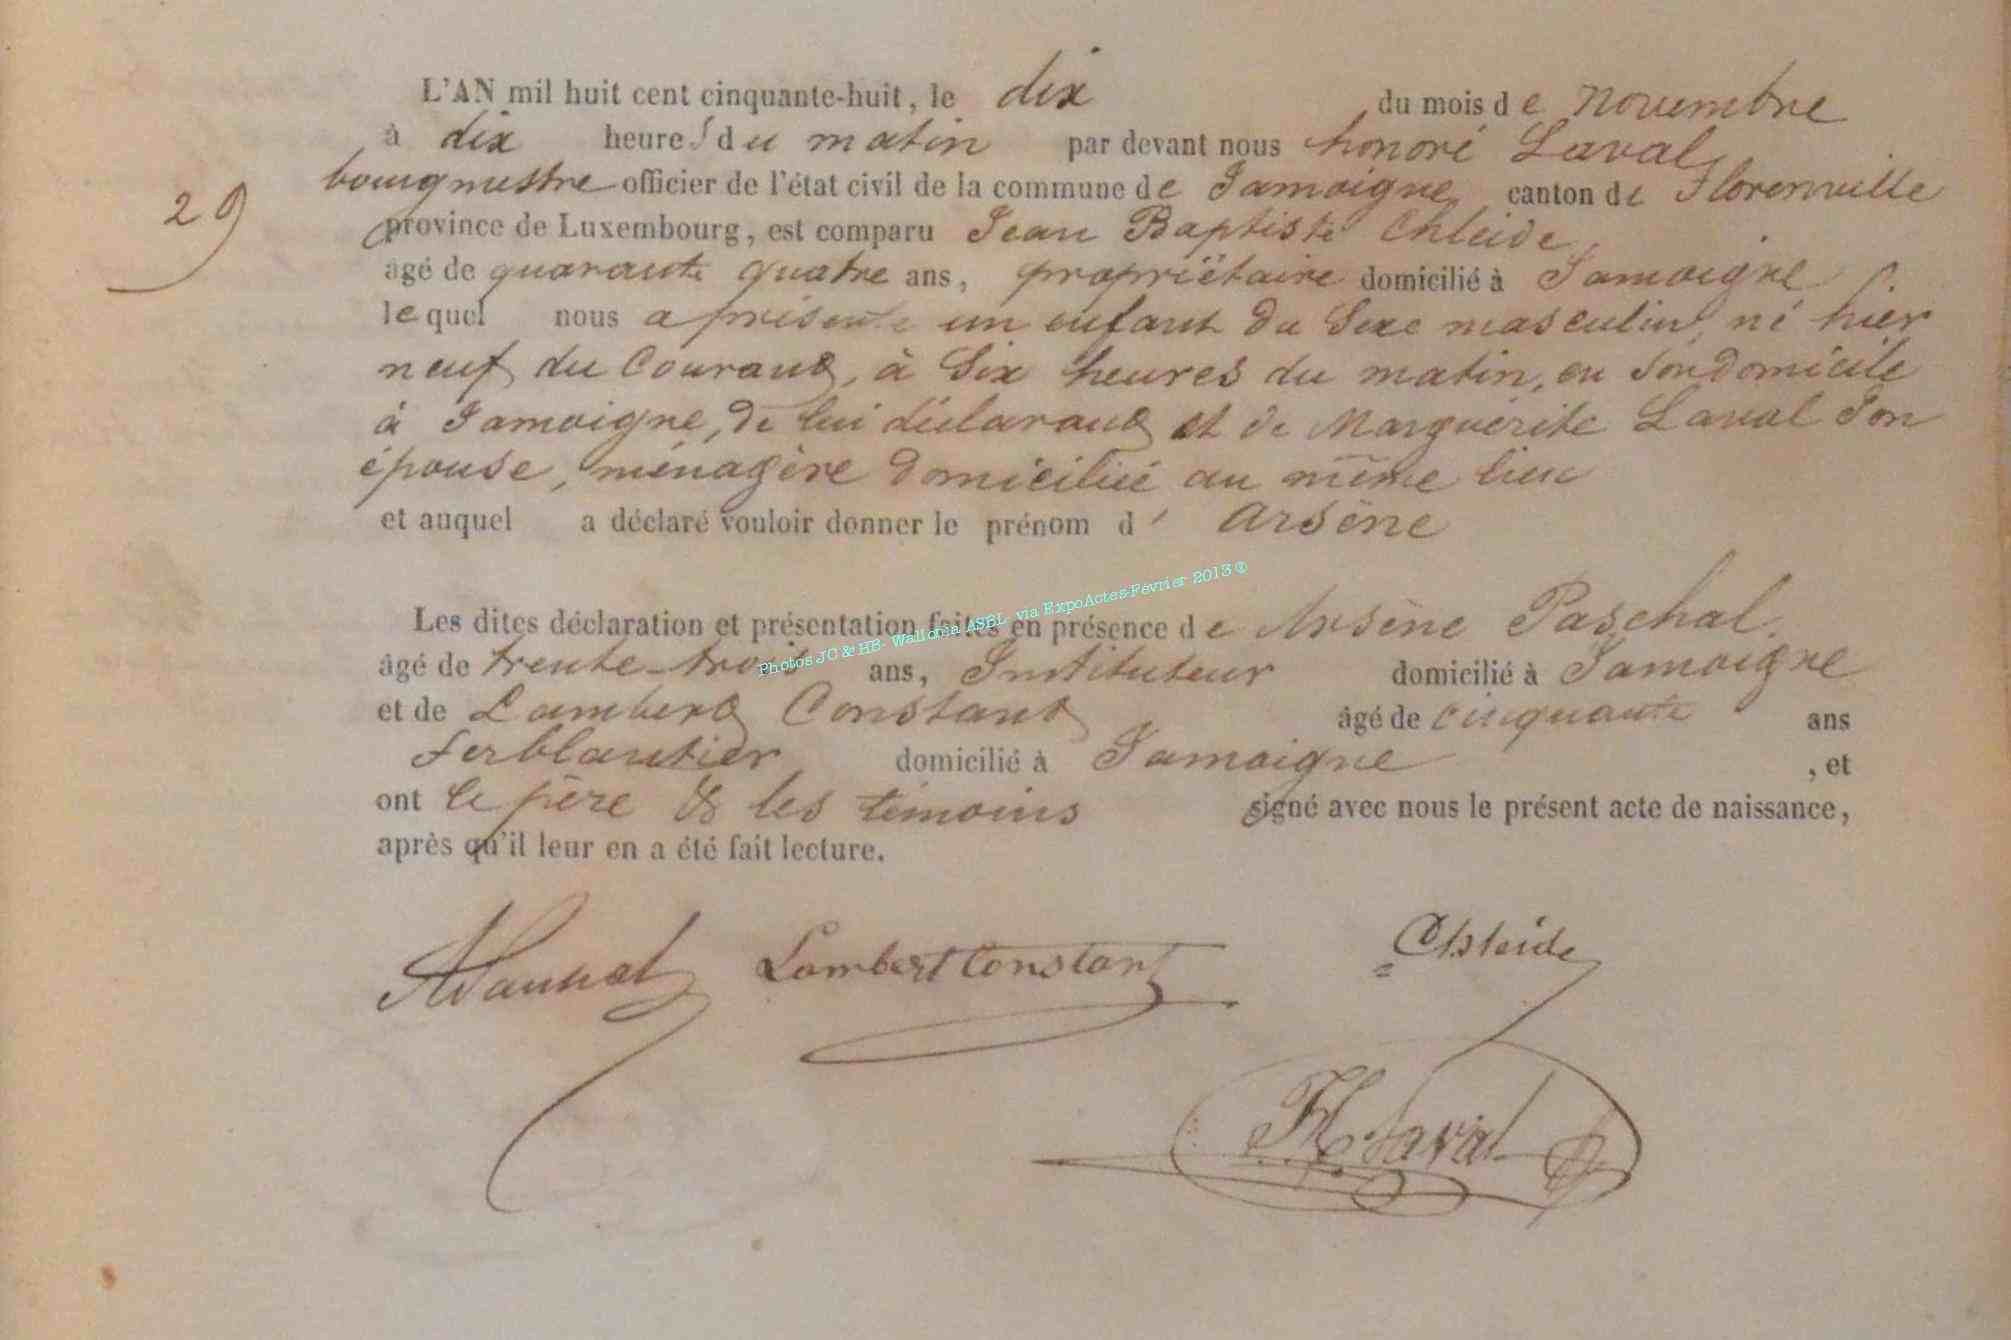 L'AN mil huit cent cinquante-huit, le dix du mois de Novembre
à dix heures du matin par devant nous honoré Laval
bourgmestre officier de l'état civil de la commune de Jamoigne canton de Florenville
province de Luxembourg, est comparu Jean Baptiste Chleide,
29
âgé de quarante quatre ans, propriétaire domicilié à Jamoigne
lequel nous a présenté un enfant du Sexe masculin, né hier
neuf du Courant, à Six heures du matin, en Son domicile
à Jamoigne, de lui déclarant et de Marguerite Laval Son
épouse, ménagère domiciliée au même lieu
et auquel a déclaré vouloir donner le prénom d' Arsène
Les dites déclaration et présentation faites en présence de Arsène Paschal.
Photos JC & HB- Wallonia ASBL via ExpoActes-Février 2013 ®
âgé de trente-trois ans, Instituteur domicilié à Jamoigne
et de Lambert Constant âgé de cinquante ans
ferblantier domicilié à Jamoigne , et
ont le père & les témoins signé avec nous le présent acte de naissance,
après qu'il leur en a été fait lecture.
Lambert Constant Chleide
H Laval